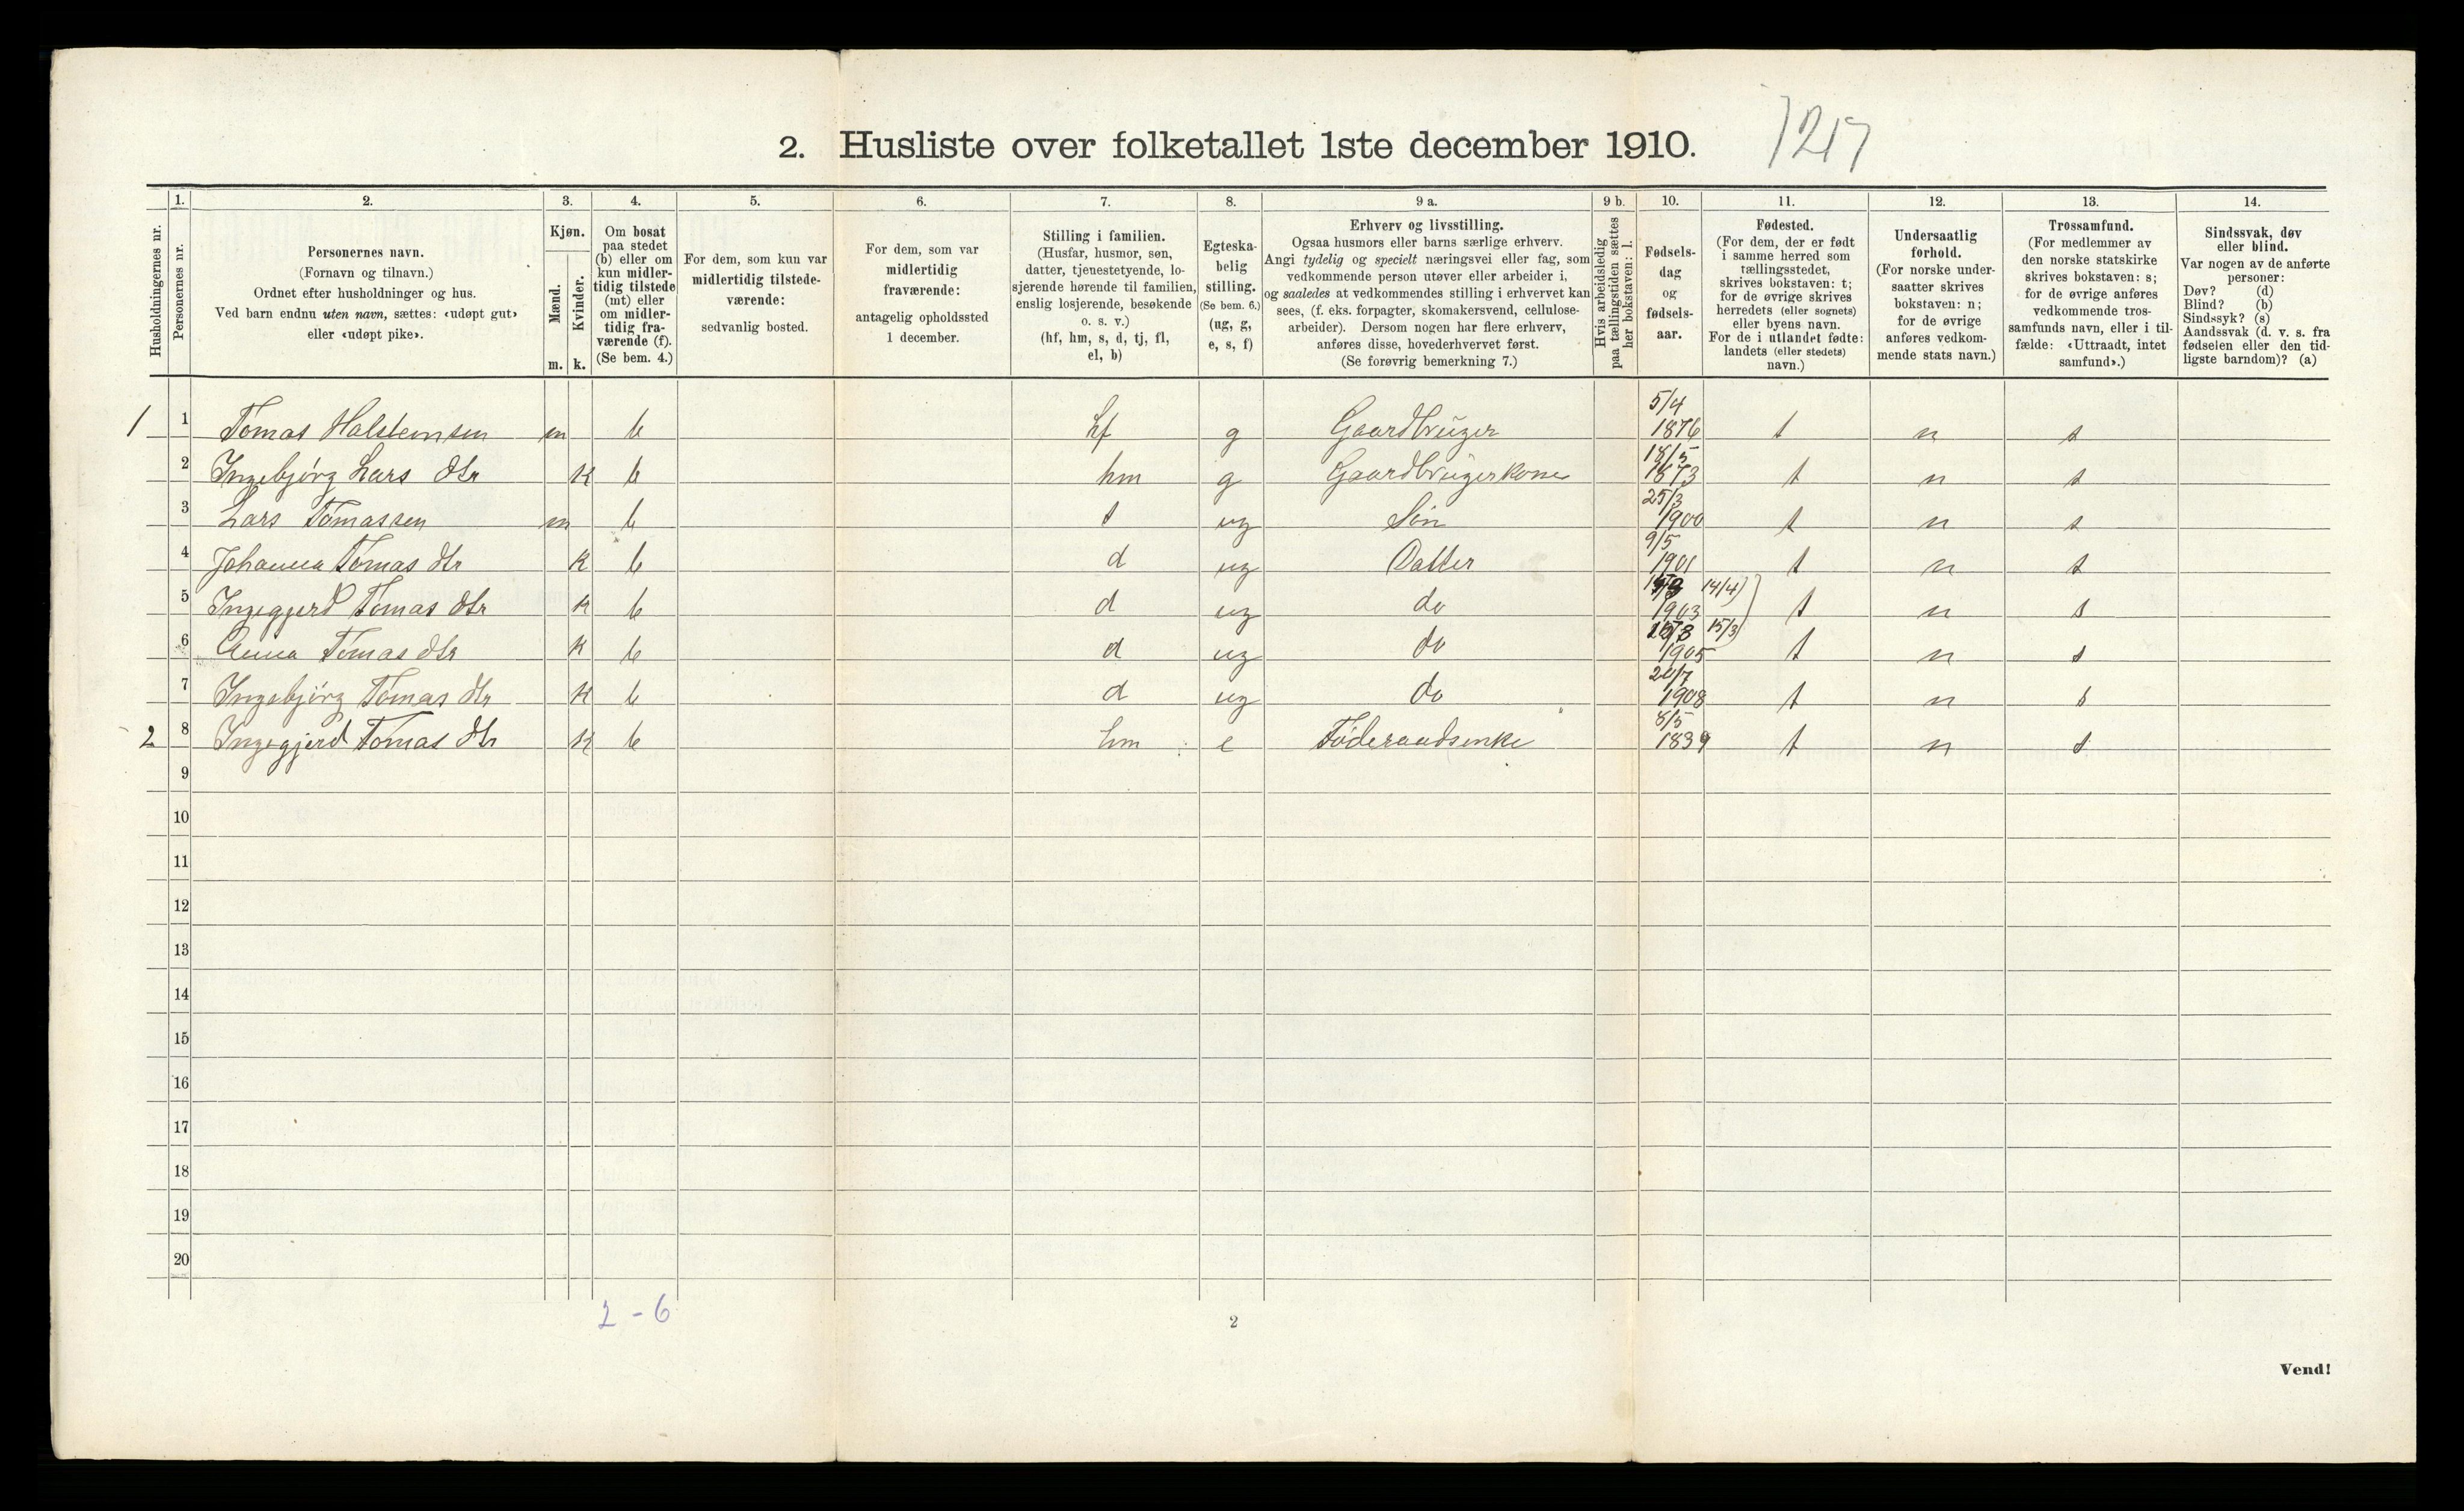 2. Husliste over folketallet 1ste december 1910. 1217
1. 2. 3. 4. 5. 6. 7. 8. 9 a. 9 b. 10. 11. 12. 13. 14.
Husholdningernes nr.
Personernes nr.
Personernes navn.
(Fornavn og tilnavn.)
Ordnet efter husholdninger og hus.
Ved barn endnu uten navn, sættes: «udøpt gut»
eller «udøpt pike».
Kjøn.
Mænd.
Kvinder.
m. k.
Om bosat
paa stedet
(b) eller om
kun midler-
tidig tilstede
(mt) eller
om midler-
tidig fra-
værende (f).
(Se bem. 4.)
For dem, som kun var
midlertidig tilstede-
værende:
sedvanlig bosted.
For dem, som var
midlertidig
fraværende:
antagelig opholdssted
1 december.
Stilling i familien.
(Husfar, husmor, søn,
datter, tjenestetyende, lo-
sjerende hørende til familien,
enslig losjerende, besøkende
o. s. v.)
(hf, hm, s, d, tj, fl,
el, b)
Egteska-
belig
stilling.
(Se bem. 6.)
(ug, g,
e, s, f)
Erhverv og livsstilling.
Ogsaa husmors eller barns særlige erhverv.
Angi tydelig og specielt næringsvei eller fag, som
vedkommende person utøver eller arbeider i,
og saaledes at vedkommendes stilling i erhvervet kan
sees, (f. eks. forpagter, skomakersvend, cellulose-
arbeider). Dersom nogen har flere erhverv,
anføres disse, hovederhvervet først.
(Se forøvrig bemerkning 7.)
Hvis arbeidsledig
paa tællingstiden sættes
her bokstaven: l.
Fødsels-
dag
og
fødsels-
aar.
Fødested.
(For dem, der er født
i samme herred som
tællingsstedet,
skrives bokstaven: t;
for de øvrige skrives
herredets (eller sognets)
eller byens navn.
For de i utlandet fødte:
landets (eller stedets)
navn.)
Undersaatlig
forhold.
(For norske under-
saatter skrives
bokstaven: n;
for de øvrige
anføres vedkom-
mende stats navn.)
Trossamfund.
(For medlemmer av
den norske statskirke
skrives bokstaven: s;
for de øvrige anføres
vedkommende tros-
samfunds navn, eller i til-
fælde: «Uttraadt, intet
samfund».)
Sindssvak, døv
eller blind.
Var nogen av de anførte
personer:
Døv? (d)
Blind? (b)
Sindssyk? (s)
Aandssvak (d. v. s. fra
fødselen eller den tid-
ligste barndom)? (a)
1 1 Tomas Halsteinsen m b hf g Gaardbruger 5/4 1876 t n s
2 Ingebjörg Lars dtr k b hm g Gaardbrugerkone 18/5 1873 t n s
3 Lars Tomassen m b s ug Sön 25/3 1900 t n s
4 Johanna Tomas dtr k b d ug Datter 9/5 1901 t n s
5 Ingegjerd Tomas dtr k b d ug do 1903 14/4) t n s
6 Anna Tomas dtr k b d ug do 1905 15/3) t n s
7 Ingebjörg Tomas dtr k b d ug do 20/7 1908 t n s
2 8 Ingegjerd Tomas dtr k b hm e Föderaadsenke 8/5 1839 t n s
9
10
11
12
13
14
15
16
17
18
19
20
2 - 6
2
Vend!